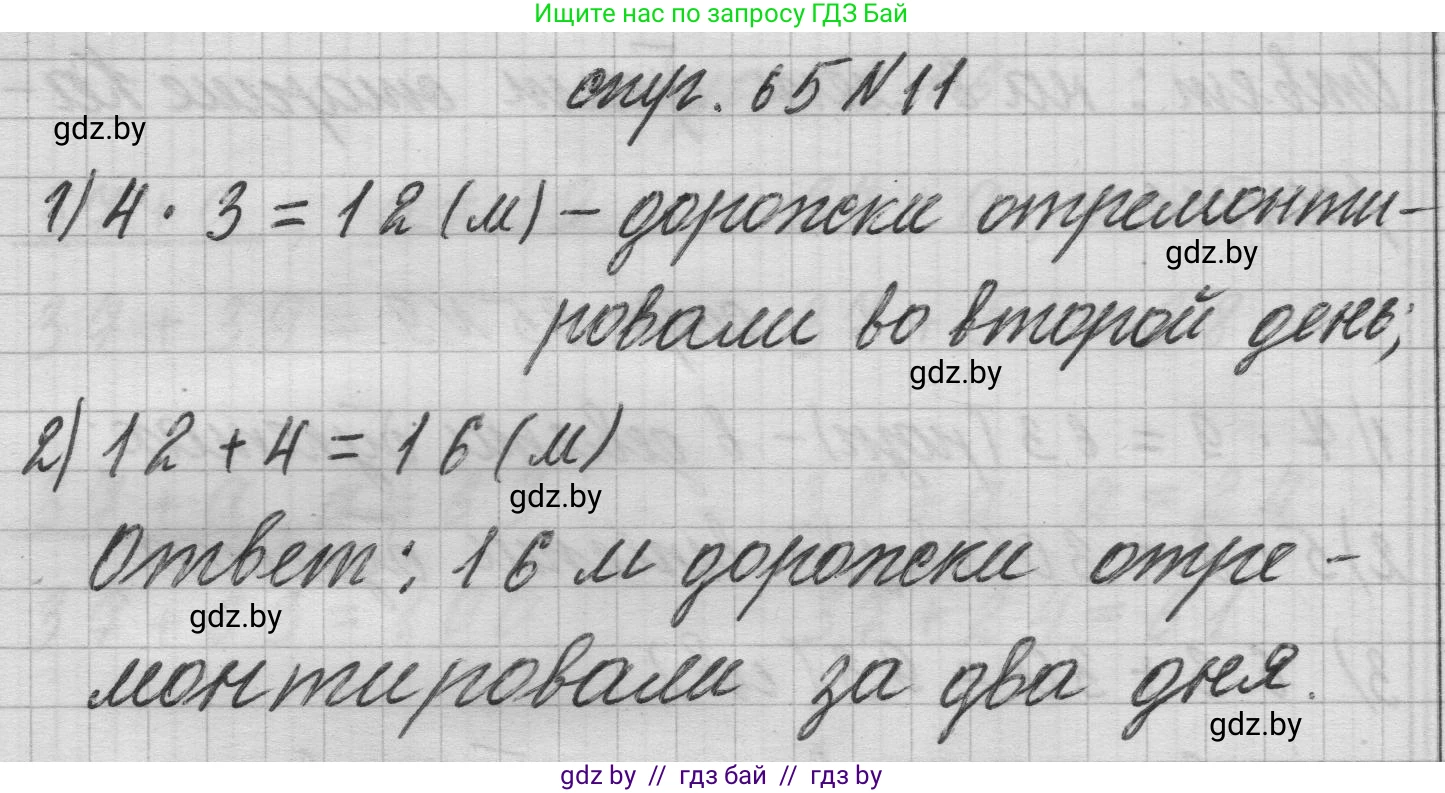 Ищите нас по запросу ГДЗ Бай
стр. 65 N 11
gdz.by
1) 4 · 3 = 12 (м) – дорожки отремонти-
gdz.by
ровали во второй день;
gdz.by
2) 12 + 4 = 16 (м)
gdz.by
Ответ: 16 м дорожки отре-
gdz.by
монтировали за два дня.
gdz.by
gdz by // гдз бай // гдз by